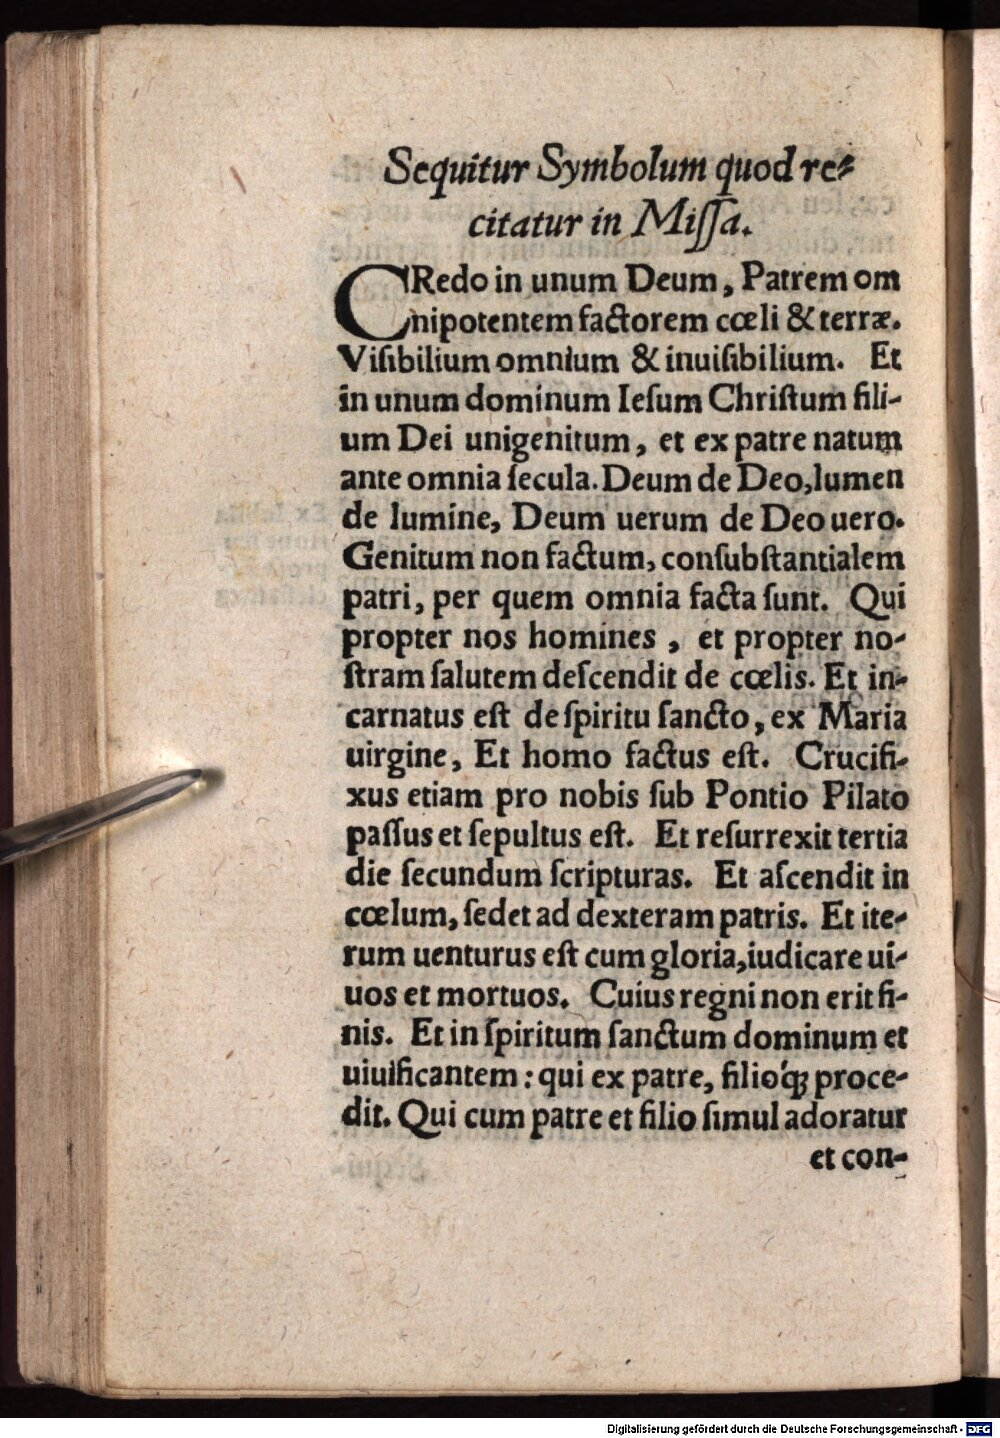 Sequitur Symbolum quod re⸗
citatur in Miſſa.
CRedo in unum Deum, Patrem om
nipotentem factorem cœli & terræ.
Viſibilium omnium & inuiſibilium. Et
in unum dominum Ieſum Chriſtum fili-
um Dei unigenitum, et ex patre natum
ante omnia ſecula. Deum de Deo, lumen
de lumine, Deum uerum de Deo uero.
Genitum non factum, conſubſtantialem
patri, per quem omnia facta ſunt. Qui
propter nos homines, et propter no-
ſtram ſalutem deſcendit de cœlis. Et in-
carnatus eſt de ſpiritu ſancto, ex Maria
uirgine, Et homo factus eſt. Crucifi-
xus etiam pro nobis ſub Pontio Pilato
paſſus et ſepultus eſt. Et reſurrexit tertia
die ſecundum ſcripturas. Et aſcendit in
cœlum, ſedet ad dexteram patris. Et ite-
rum uenturus eſt cum gloria, iudicare ui-
uos et mortuos. Cuius regni non erit fi-
nis. Et in ſpiritum ſanctum dominum et
uiuificantem: qui ex patre, filióq; proce-
dit. Qui cum patre et filio ſimul adoratur
et con-
Digitalisierung gefördert durch die Deutsche Forschungsgemeinschaft - DFG